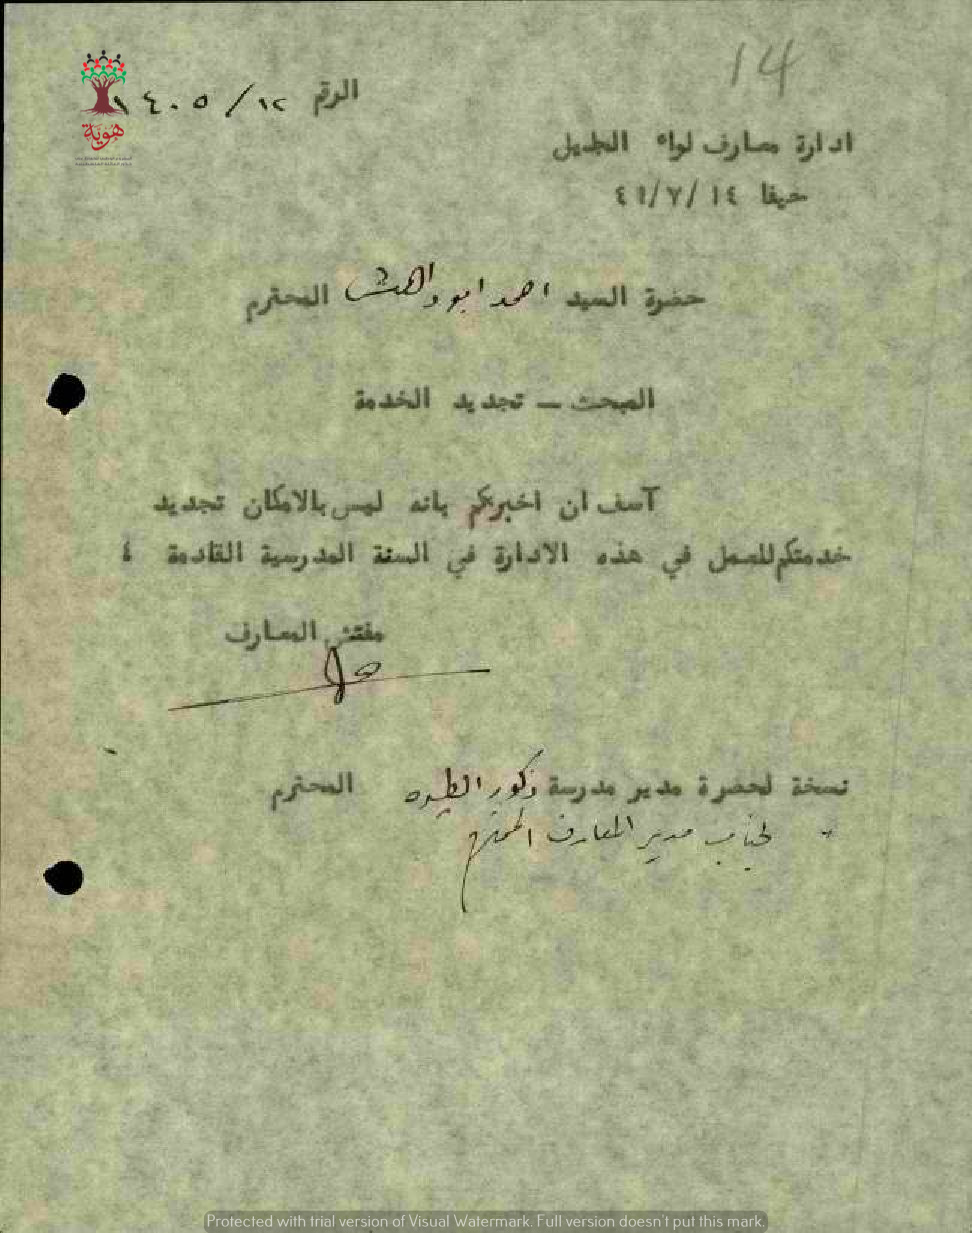 14
الرقم ١٢/ ١٤٠٥
هوية
ادارة معارف لواء الجليل
حيفا ١٤ /٧/٤١
حضرة السيد احمد ابو المحترم
المبحث — تجديد الخدمة
آسف ان اخبركم بانه ليس بالامكان تجديد
خدمتكم للعمل في هذه الادارة في السنة المدرسية القادمة ؛
مفتش المعارف
نسخة لحضرة مدير مدرسة ذكور الطيره المحترم
" لجناب مدير المعارف
Protected with trial version of Visual Watermark. Full version doesn't put this mark.